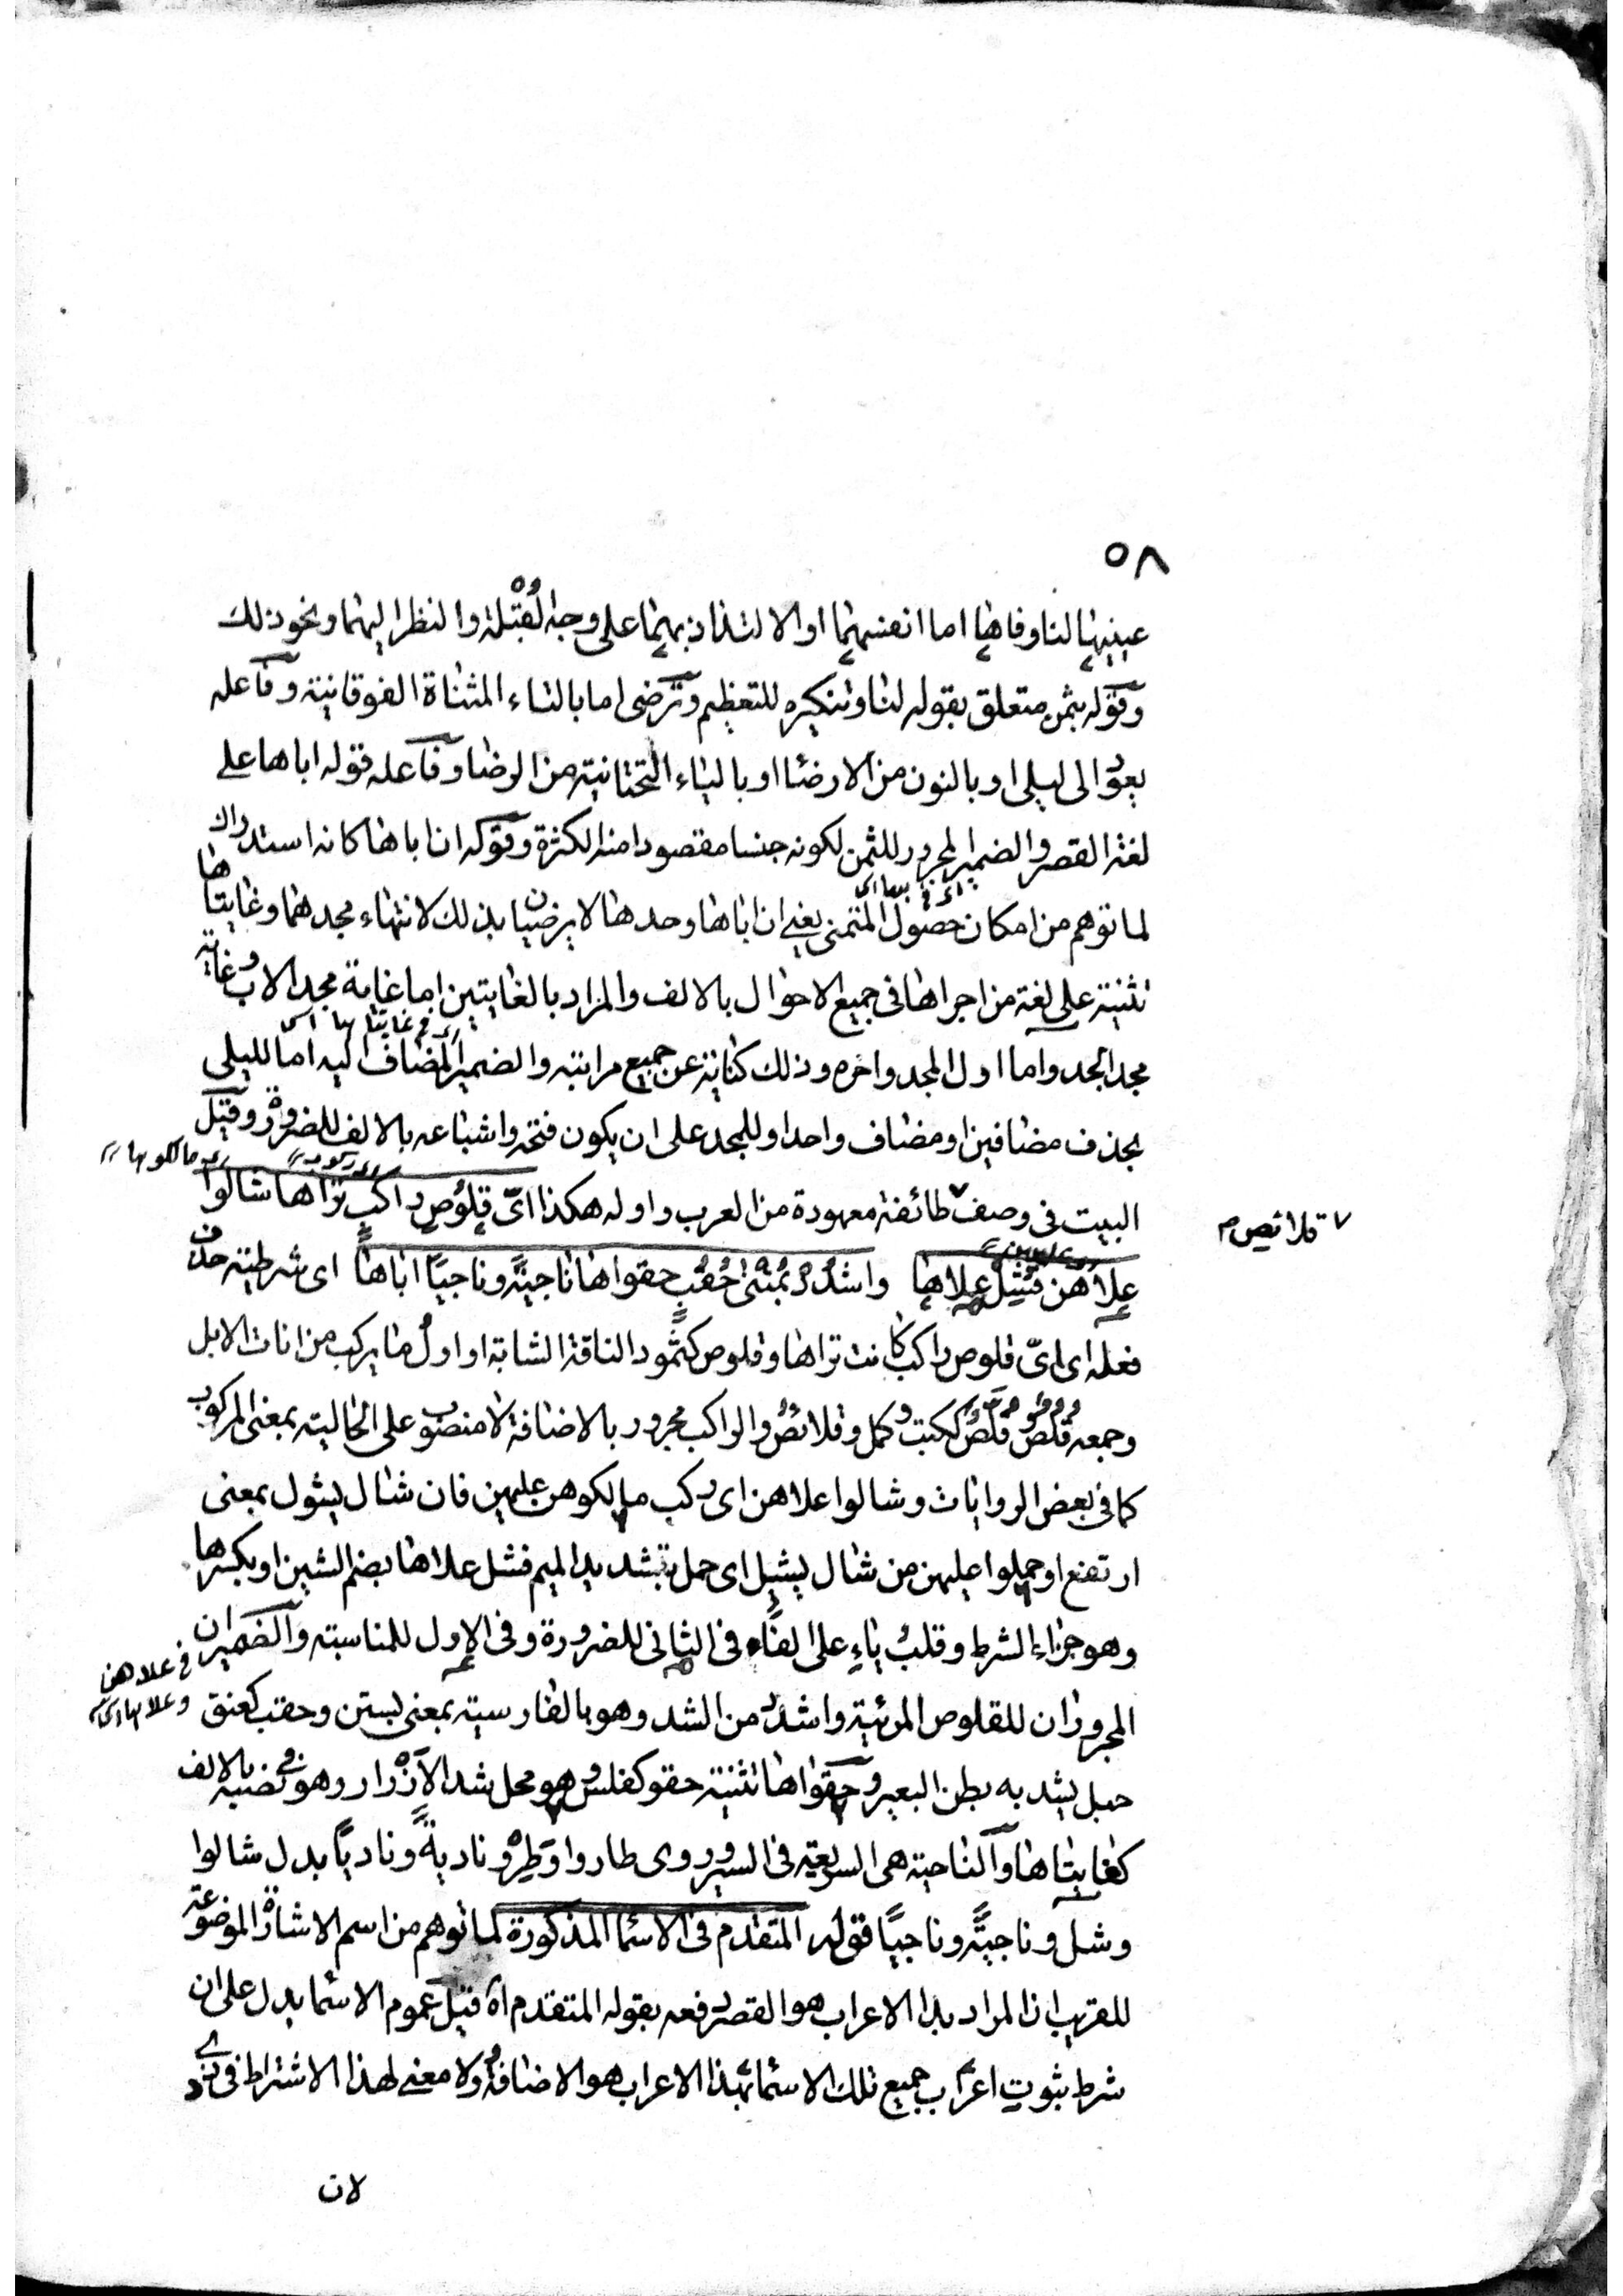 ٥٨
عينيها لنا وفاها اما انفسهما او الالتذاذ بهما على وجه القُبْلة والنظر اليهما ونحو ذلك
وقوله بثمن متعلق بقوله لنا وتنكيره للتعظيم وترضى اما بالتاء المثناة الفوقانية وفاعله
يعود الى ليلى او بالنون من الارضا او بالياء التحتانية من الرضا وفاعله قوله اباها على
لغة القصر والضمير المجرور للثمن لكونه جنسا مقصودا منه الكثرة وقوله ان اباها كانه استدراك
لما توهم من امكان حصول المتمنى يعنى ان اباها وجدها لا يرضيان بذلك لانتهاء مجدهما وغايتاها
تثنية على لغة من اجراها فى جميع الاحوال بالالف والمراد بالغايتين اما غاية مجد الاب وغاية
مجد الجد واما اول المجد واخره وذلك كناية عن جميع مراتبه والضمير المضاف اليه اما لليلى
بحذف مضافين او مضاف واحد او للمجد على ان يكون فتحه واشباعه بالالف للضرورة وقيل
البيت فى وصف طائفة معهودة من العرب واوله هكذا اىّ قلوص راكب تراها شالوا
علاهن فشل علاها واشدد بمثنى حُقُب حقواها ناجيةً وناجيًا اباها اى شرطية حذف
فعله اى اىّ قلوص راكب كانت تراها وقلوص كثمود الناقة الشابة او اول ما يركب من اناث الابل
وجمعه قلص وقلص ككتب وكمل وقلائص والراكب مجرور بالاضافة لا منصوب على الحالية بمعنى المركوب
كما فى بعض الروايات وشالوا علاهن اى ركب مالكوهن عليهن فان شال يشول بمعنى
ارتفع او حملوا عليهن من شال يشيل اى حمل بتشديد الميم فشل علاها بضم الشين او بكسرها
وهو جزاء الشرط وقلب ياء على الفاء فى الثانى للضرورة وفى الاول للمناسبة والضميران
فى علاهن
وعلاها
المجروران للقلوص المرئية واشدد من الشد وهو بالفارسية بمعنى بستن وحقب كعنق
حبل يشد به بطن البعير وحقواها تثنية حقو كفلس وهو محل شد الازرار وهو فى نصبه بالالف
كغايتاها والناجية هى السريعة فى السير وروى طاروا وَطِرْ وناديةً وناديًا بدل شالوا
وشل وناجيةً وناجيًا قوله المتقدم فى الاسما المذكورة لما توهم من اسم الاشارة الموضوعة
للقريب ان المراد بذا الاعراب هو القصر دفعه بقوله المتقدم اه قيل عموم الاسما يدل على ان
شرط ثبوت اعراب جميع تلك الاسما بهذا الاعراب هو الاضافة ولا معنى لهذا الاشتراط فى ذو
قلائص م
لان